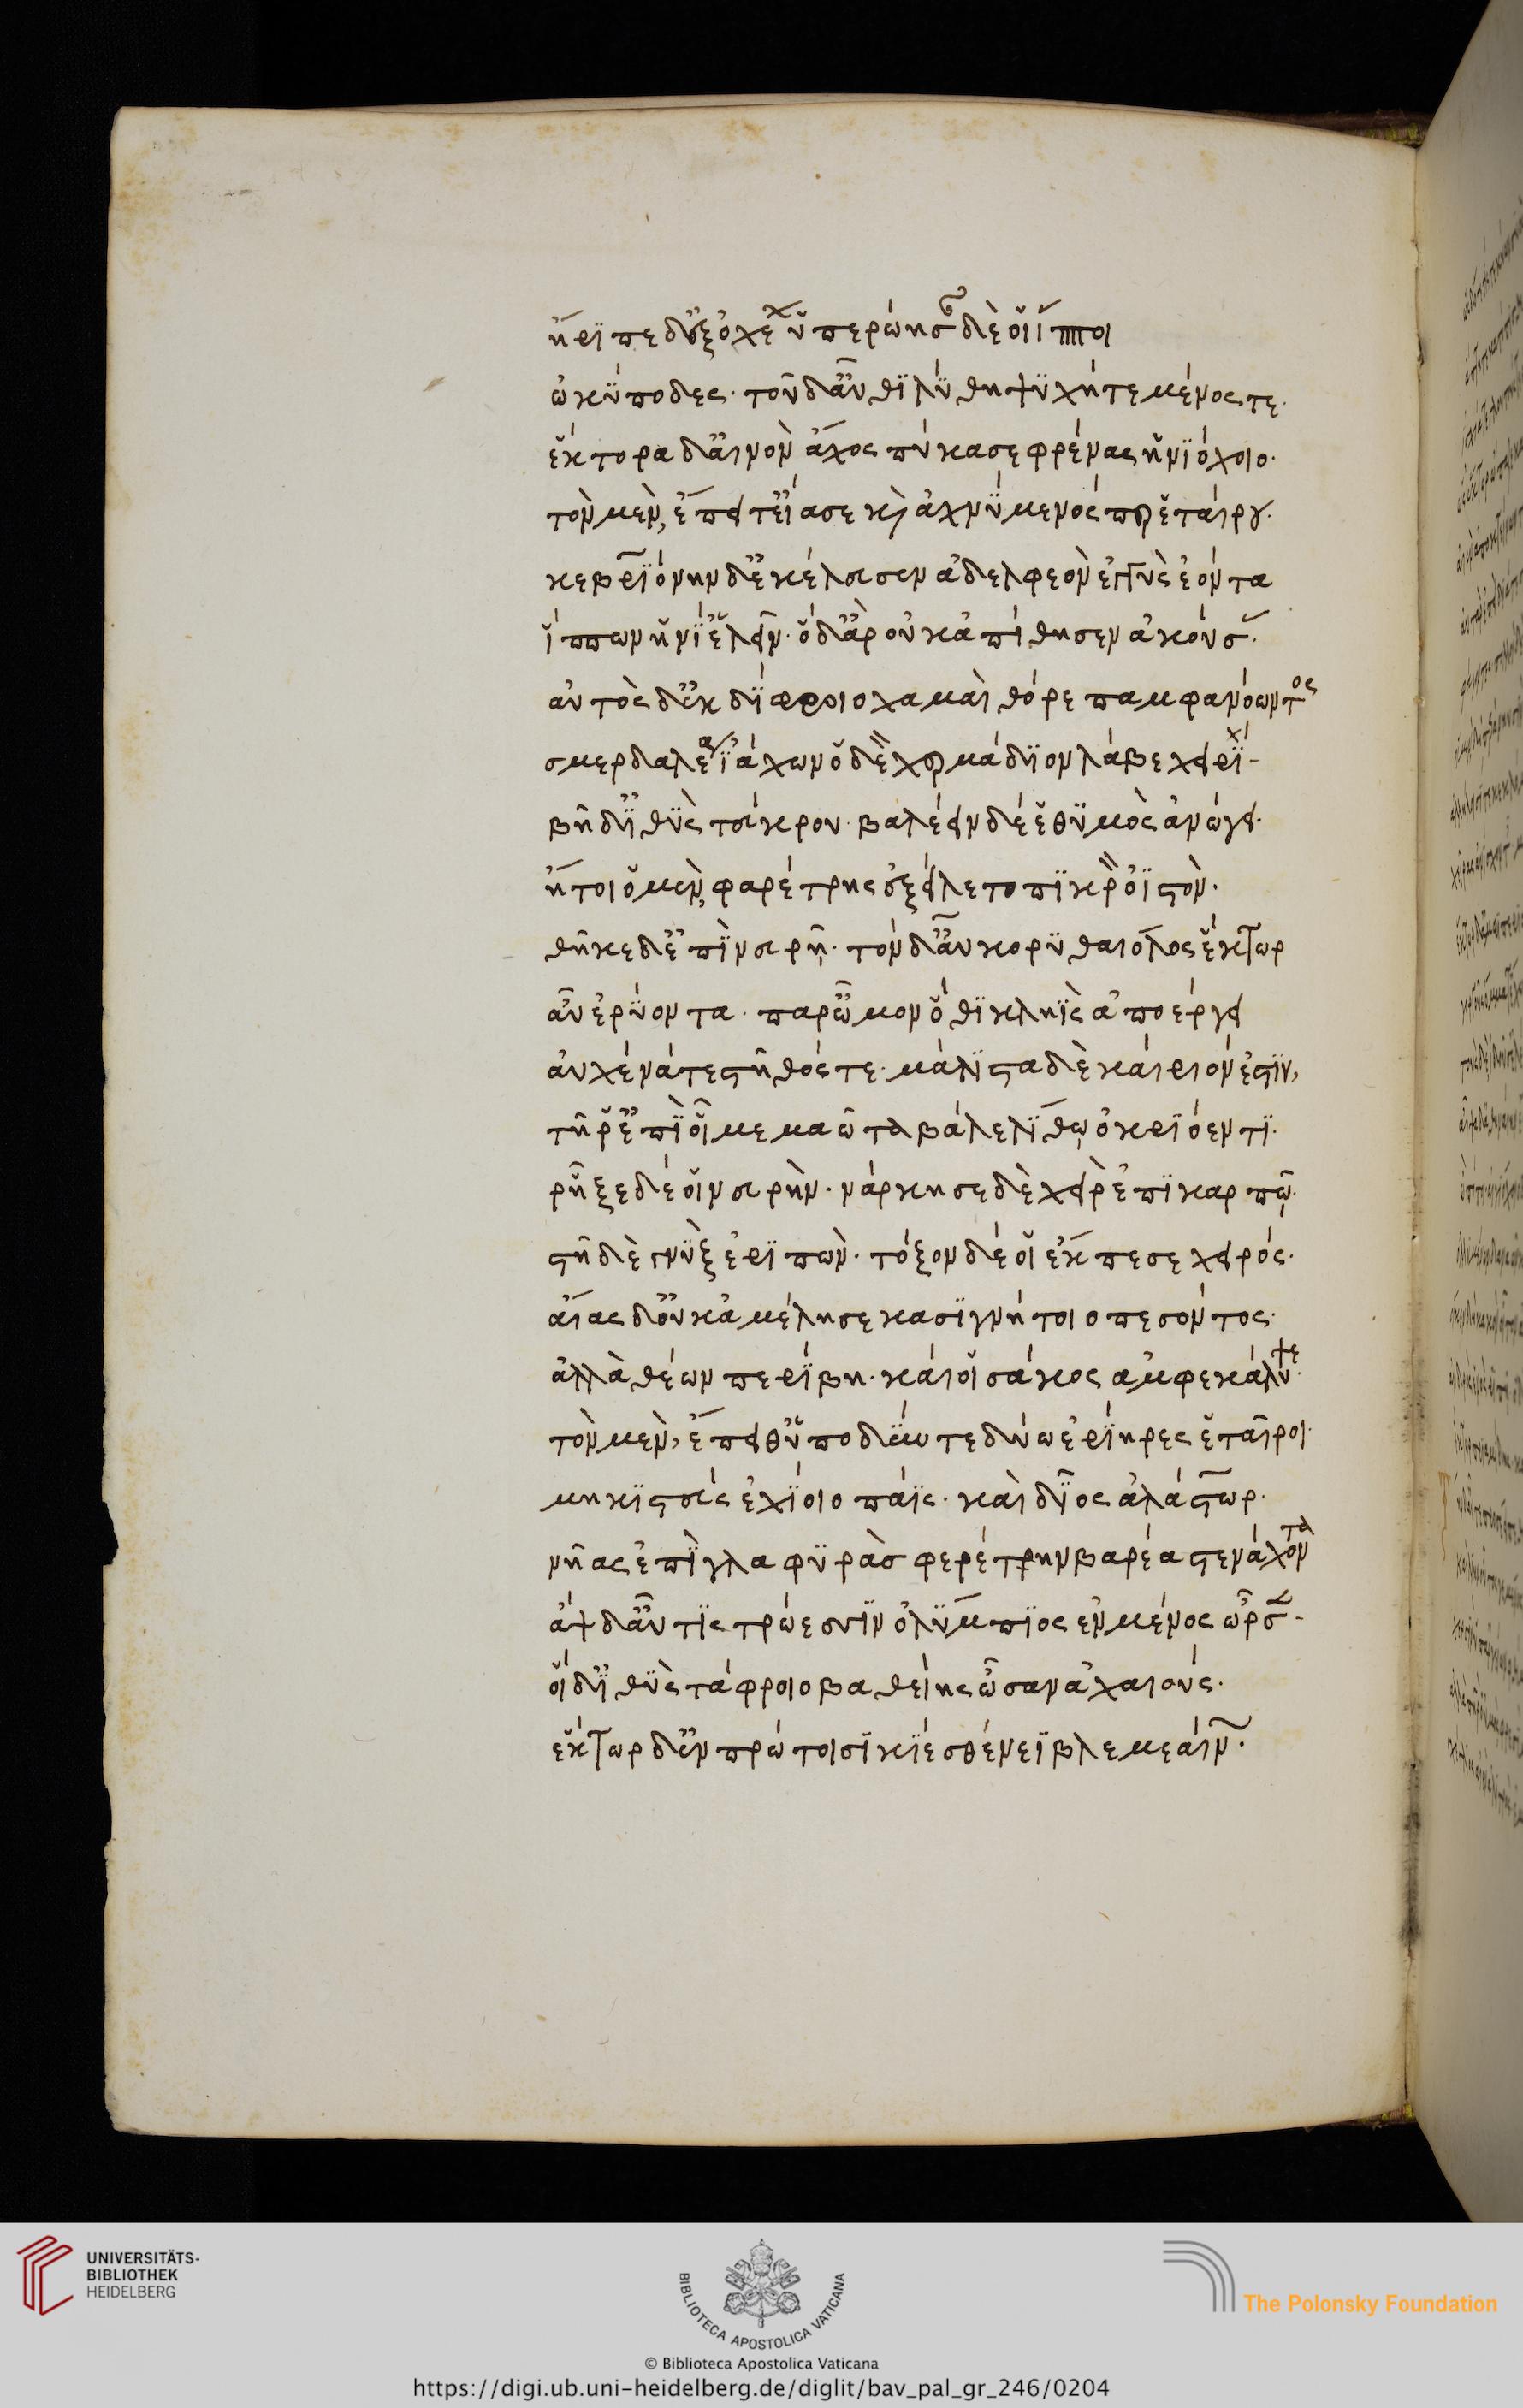 ἤριπε δ' ἐξ ὀχέων· ὑπερώησαν δέ οἱ ἵπποι
ὠκύποδες· τοῦ δ' αὖθι λύθη ψυχή τε μένος τε.
ἕκτορα δ' αἰνὸν ἄχος πύκασε φρένας ἡνιόχοιο·
τὸν μὲν ἔπειτ' εἴασε καὶ ἀχνύμενός περ ἑταίρου.
κεβριόνην δ' ἐκέλευσεν ἀδελφεὸν ἐγγὺς ἐόντα
ἵππων ἡνί' ἑλεῖν· ὁ δ' ἄρ' οὐκ ἀπίθησεν ἀκούσας.
αὐτὸς δ' ἐκ δίφροιο χαμαὶ θόρε παμφανόωντος
σμερδαλέα ἰάχων· ὁ δὲ χερμάδιον λάβε χειρί-
βῆ δ' ἰθὺς τεύκρου· βαλέειν δέ ἑ θυμὸς ἀνώγει.
ἤτοι ὁ μὲν φαρέτρης ἐξείλετο πικρὸν ὀϊστόν·
θῆκε δ' ἐπὶ νευρῇ· τὸν δ' αὖ κορυθαίολος ἕκτωρ
αὖ ἐρύοντα· παρ' ὦμον ὅθι κληῒς ἀποέργει
αὐχένά τε στῆθός τε· μάλιστα δὲ καίριόν ἐστιν,
τῇ ῥ' ἐπὶ οἷ μεμαῶτα βάλε λίθῳ ὀκριόεντι.
ῥῆξε δέ οἱ νευρήν· νάρκησε δὲ χεὶρ ἐπὶ καρπῷ.
στῆ δὲ γνὺξ ἐριπών· τόξον δέ οἱ ἔκπεσε χειρός.
αἴας δ' οὐκ ἀμέλησε κασιγνήτοιο πεσόντος.
ἀλλὰ θέων περίβη· καί οἱ σάκος ἀμφεκάλυψε.
τὸν μὲν, ἔπειθ' ὑποδύντε δύω ἐρίηρες ἑταῖροι.
μηκιστεὺς ἐχίοιο πάϊς· καὶ δῖος ἀλάστωρ.
νῆας ἐπὶ γλαφυρὰς φερέτρην βαρέα στενάχοντα
ἂψ δ' αὖτις τρώεσσιν ὀλύμπιος ἐν μένος ὦρσεν-
οἱ δ' ἰθὺς τάφροιο βαθείης ὦσαν ἀχαιούς.
ἕκτωρ δ' ἐν πρώτοισι κίε σθένεϊ βλεμεαίνων.
UNIVERSITÄTS-
BIBLIOTHEK
HEIDELBERG
BIBLIOTECA APOSTOLICA VATICANA
The Polonsky Foundation
© Biblioteca Apostolica Vaticana
https://digi.ub.uni-heidelberg.de/diglit/bav_pal_gr_246/0204